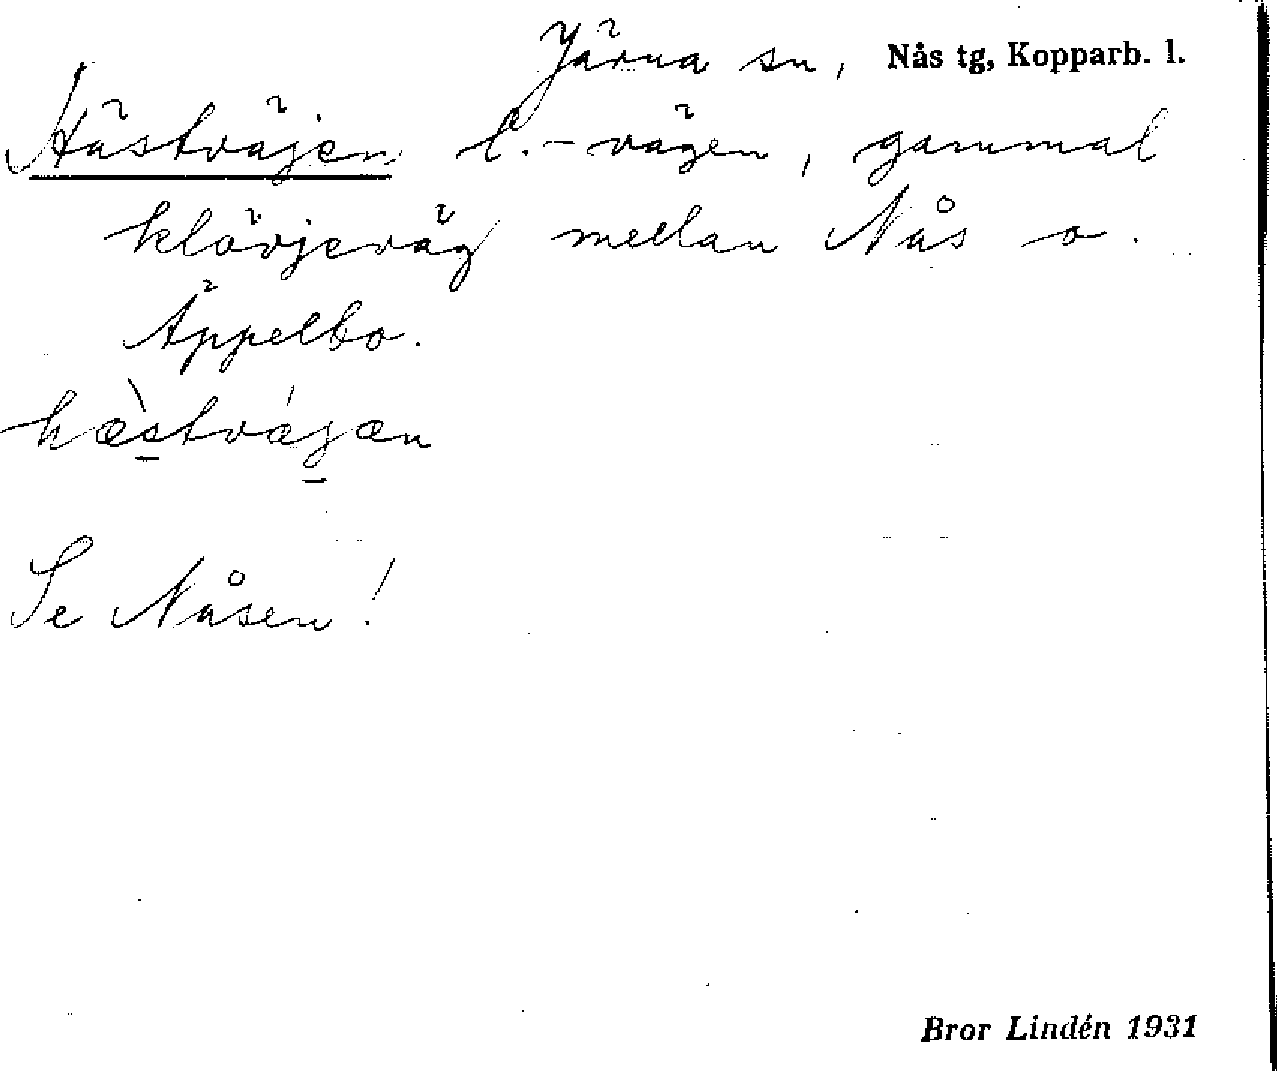 Järna sn, Nås tg, Kopparb. l.
Hästväjen l. -vägen, gammal
klövjeväg mellan Nås o.
Äppelbo.
hæ̀stvágæn
Se Nåsen!
Bror Lindén 1931